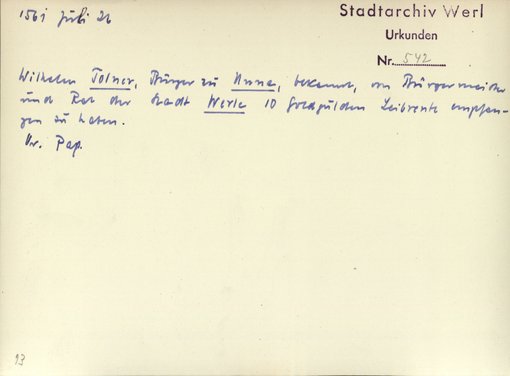 1561 Juli 26
Stadtarchiv Werl
Urkunden
Nr. 542
Wilhelm Tolner, Bürger zu Unna, bekennt, von Bürgermeister
und Rat der Stadt Werle 10 Goldgulden Leibrente empfan-
gen zu haben.
Or. Pap.
93